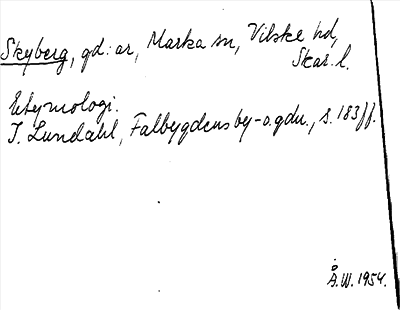 Skyberg, gd: ar, Marka sn, Vilske hd,
Skar. l.
Etymologi.
I. Lundahl, Falbygdens by- o. gdn., s. 183 ff.
Å. W. 1954.